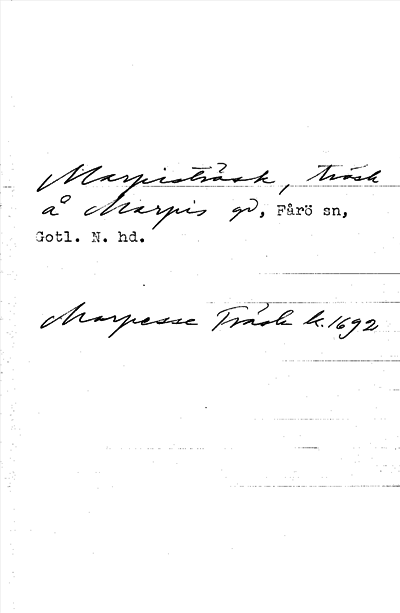 Marpisträsk, träsk
å Marpis gd, Fårö sn,
Gotl. N. hd.
Marpesse Träsk k. 1692